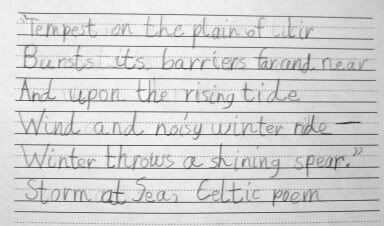 "Tempest on the plain of Lir
Bursts its barriers far and near
And upon the rising tide
Wind and noisy winter ride —
Winter throws a shining spear."
Storm at Sea, Celtic poem